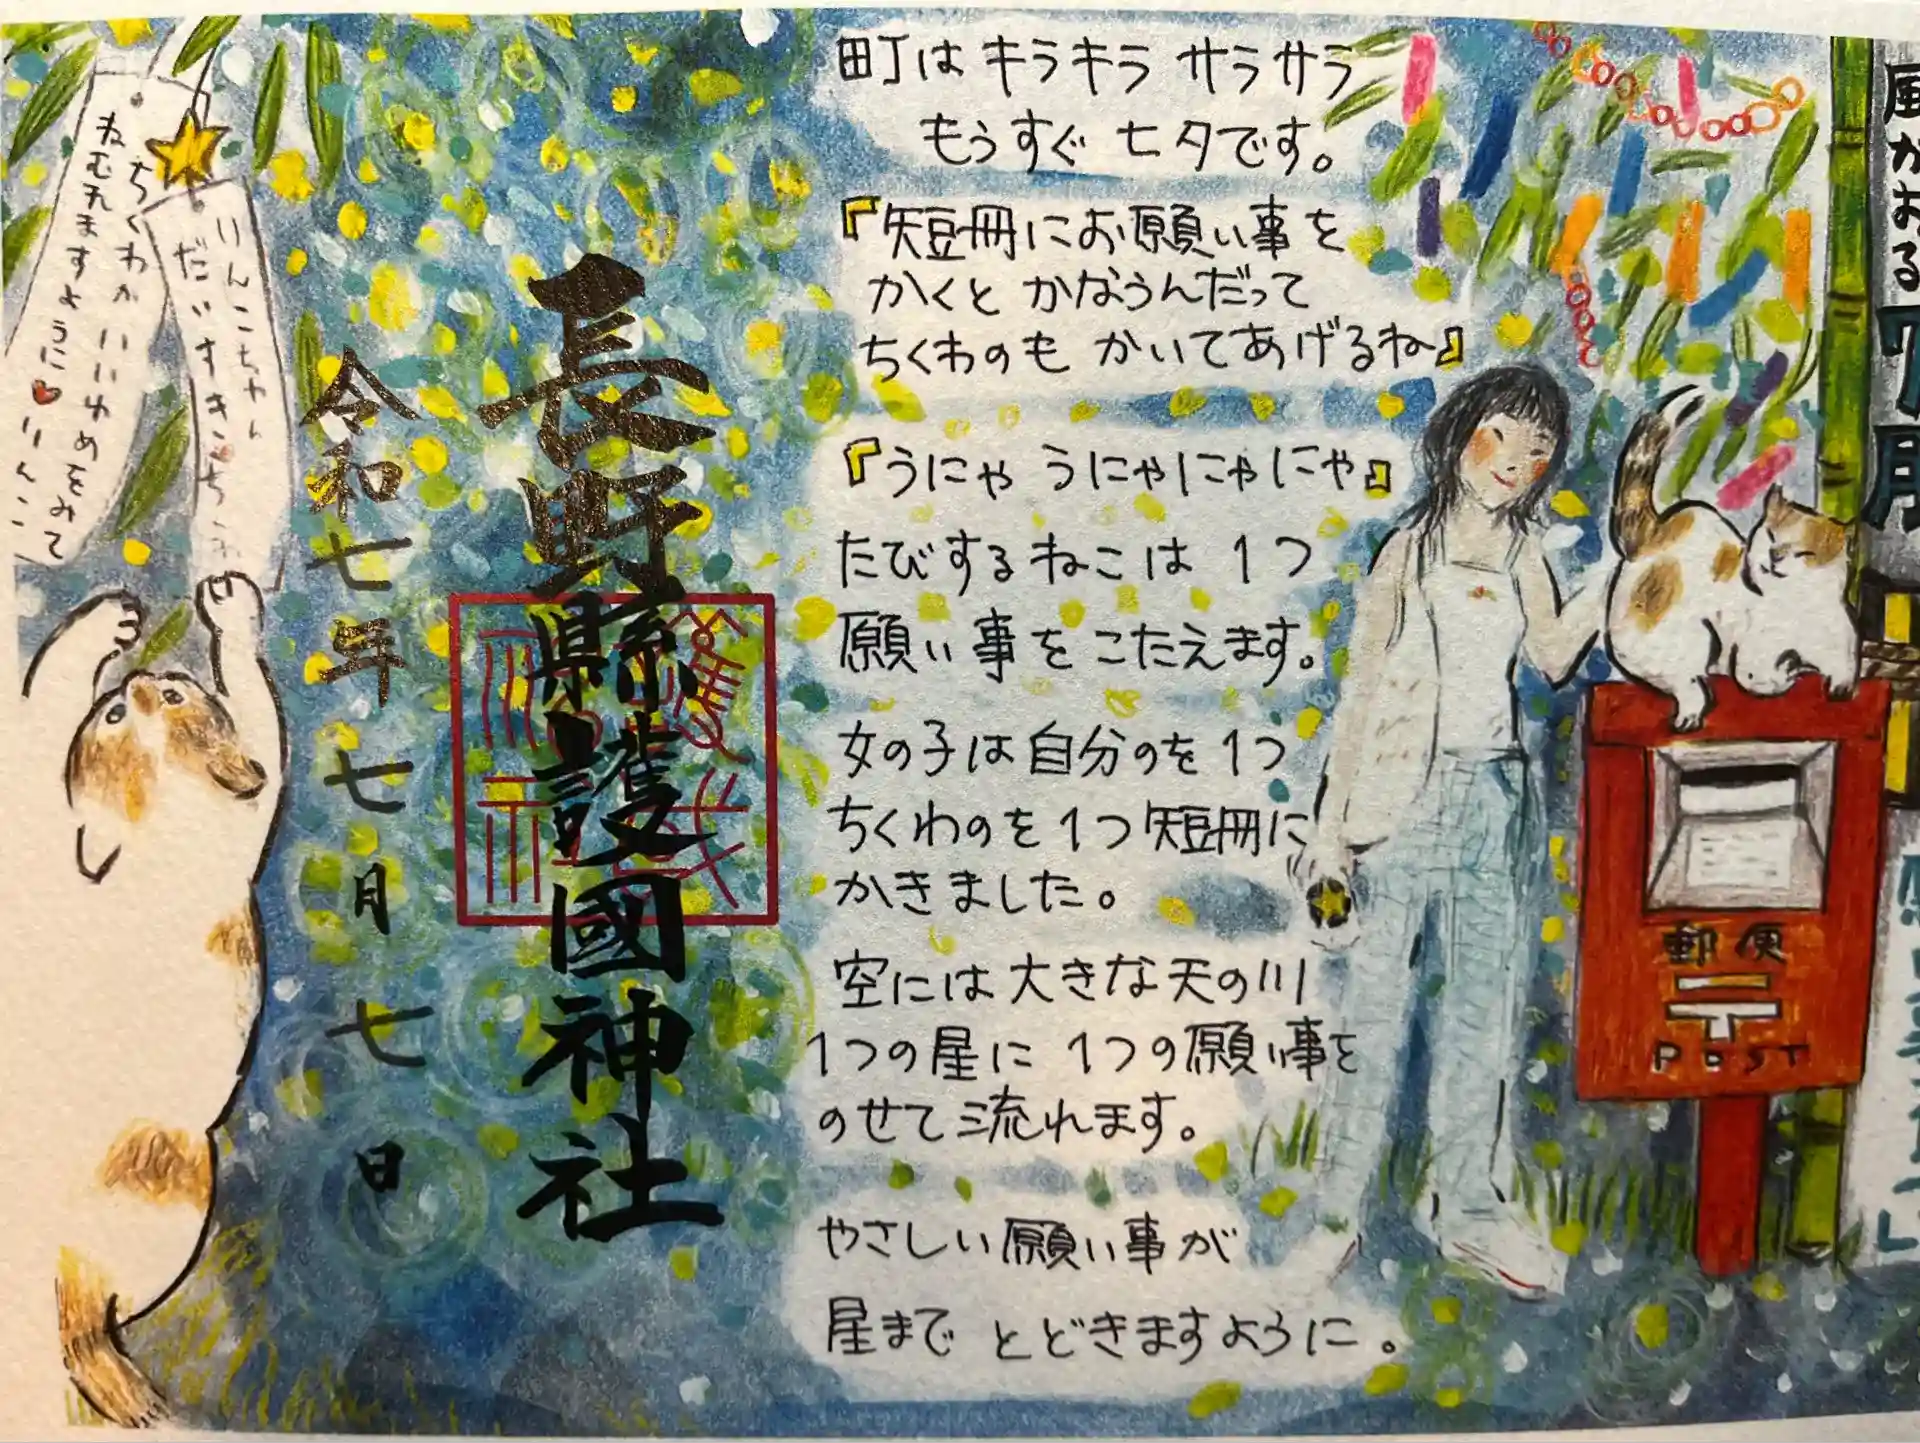 町は キラキラ サラサラ
もうすぐ 七夕です。
『短冊にお願い事を
かくと かなうんだって
ちくわのも かいてあげるね』
『うにゃ うにゃにゃにゃ』
たびするねこは 1つ
願い事をこたえます。
女の子は自分のを1つ
ちくわのを1つ短冊に
かきました。
空には大きな天の川
1つの星に 1つの願い事を
のせて流れます。
やさしい願い事が
星まで とどきますように。
長野縣護國神社
令和七年七月七日
りんこちゃん
だいすき
ちくわがいいゆめをみて
ねむれますように♥りんこ
風かおる7月
郵便
〒
POST